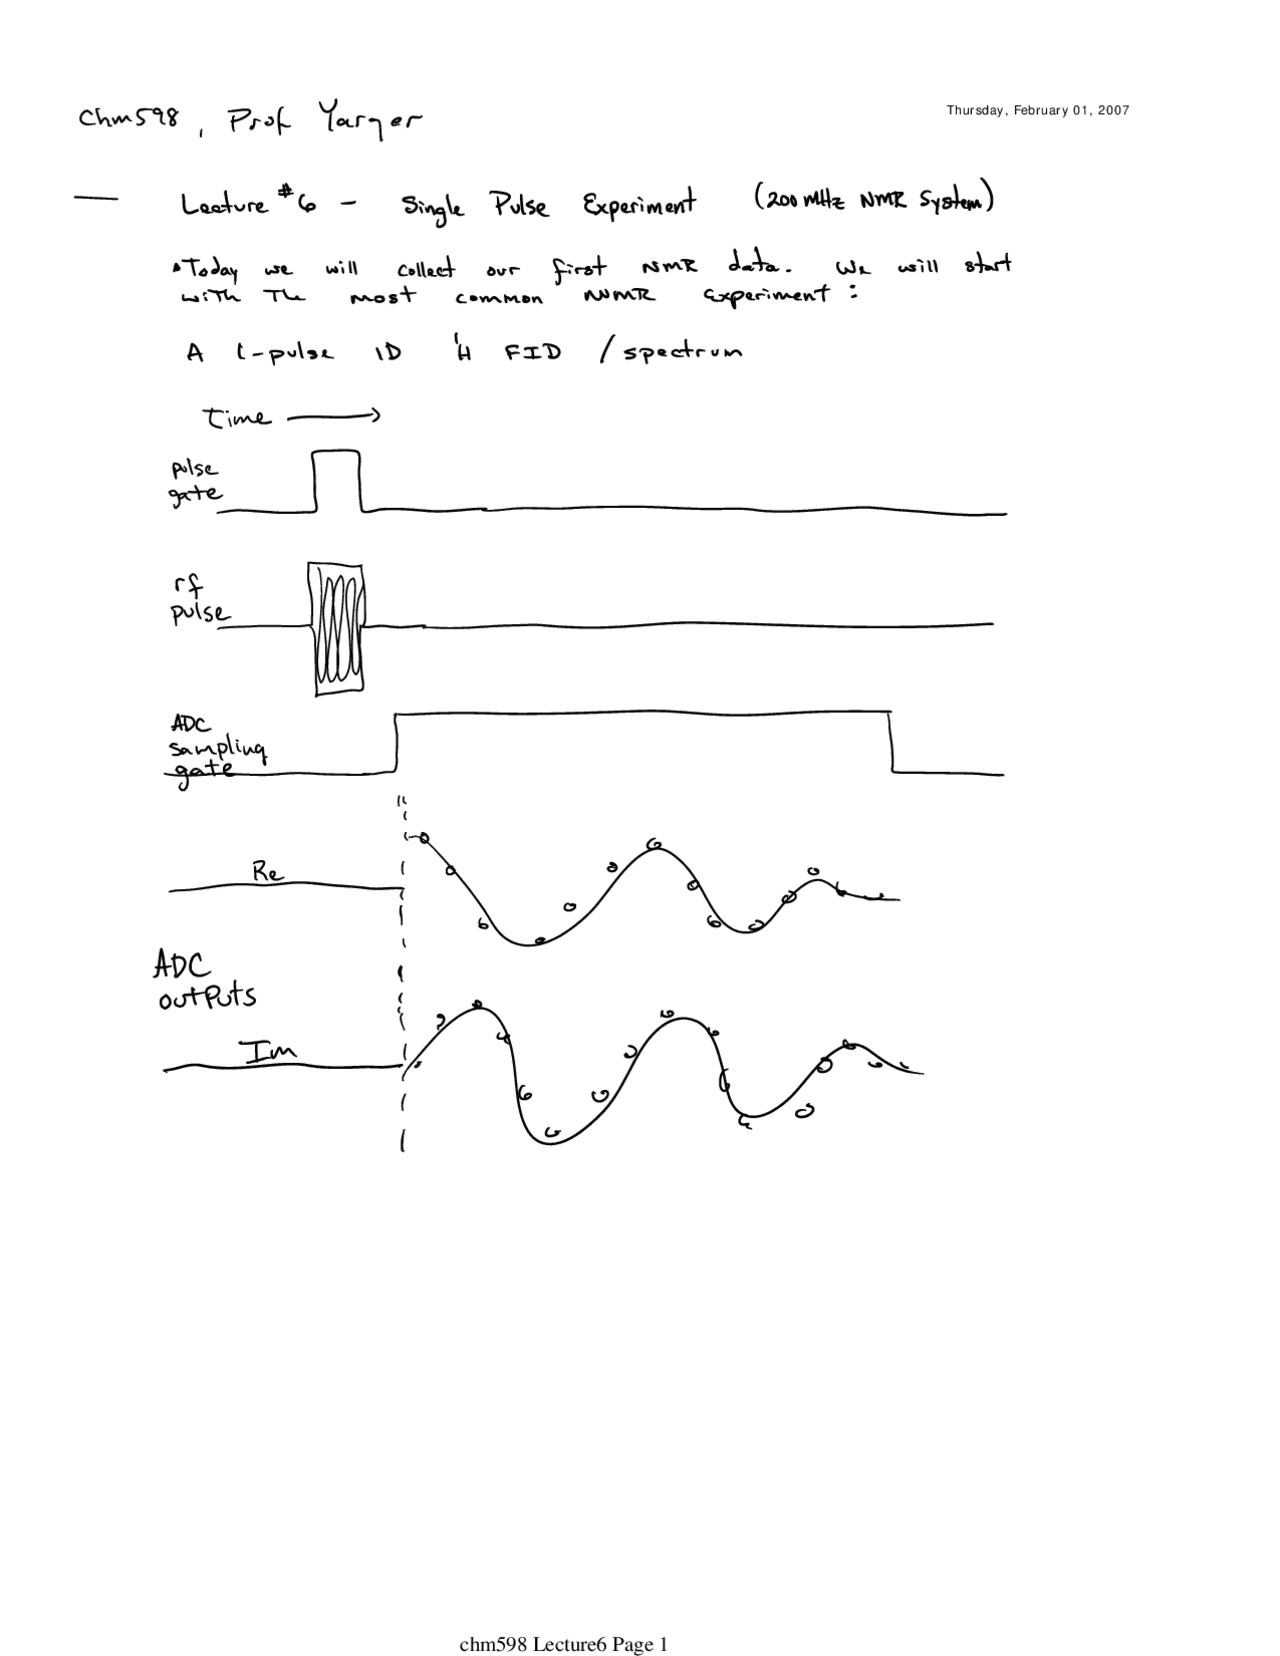 Chm598, Prof Yarger
Thursday, February 01, 2007
Lecture #6 - Single Pulse Experiment (200 MHz NMR System)
• Today we will collect our first NMR data. We will start
with The most common NMR experiment:
A 1-pulse 1D ¹H FID / spectrum
Time
pulse
gate
rf
pulse
ADC
sampling
gate
Re
ADC
outputs
Im
chm598 Lecture6 Page 1